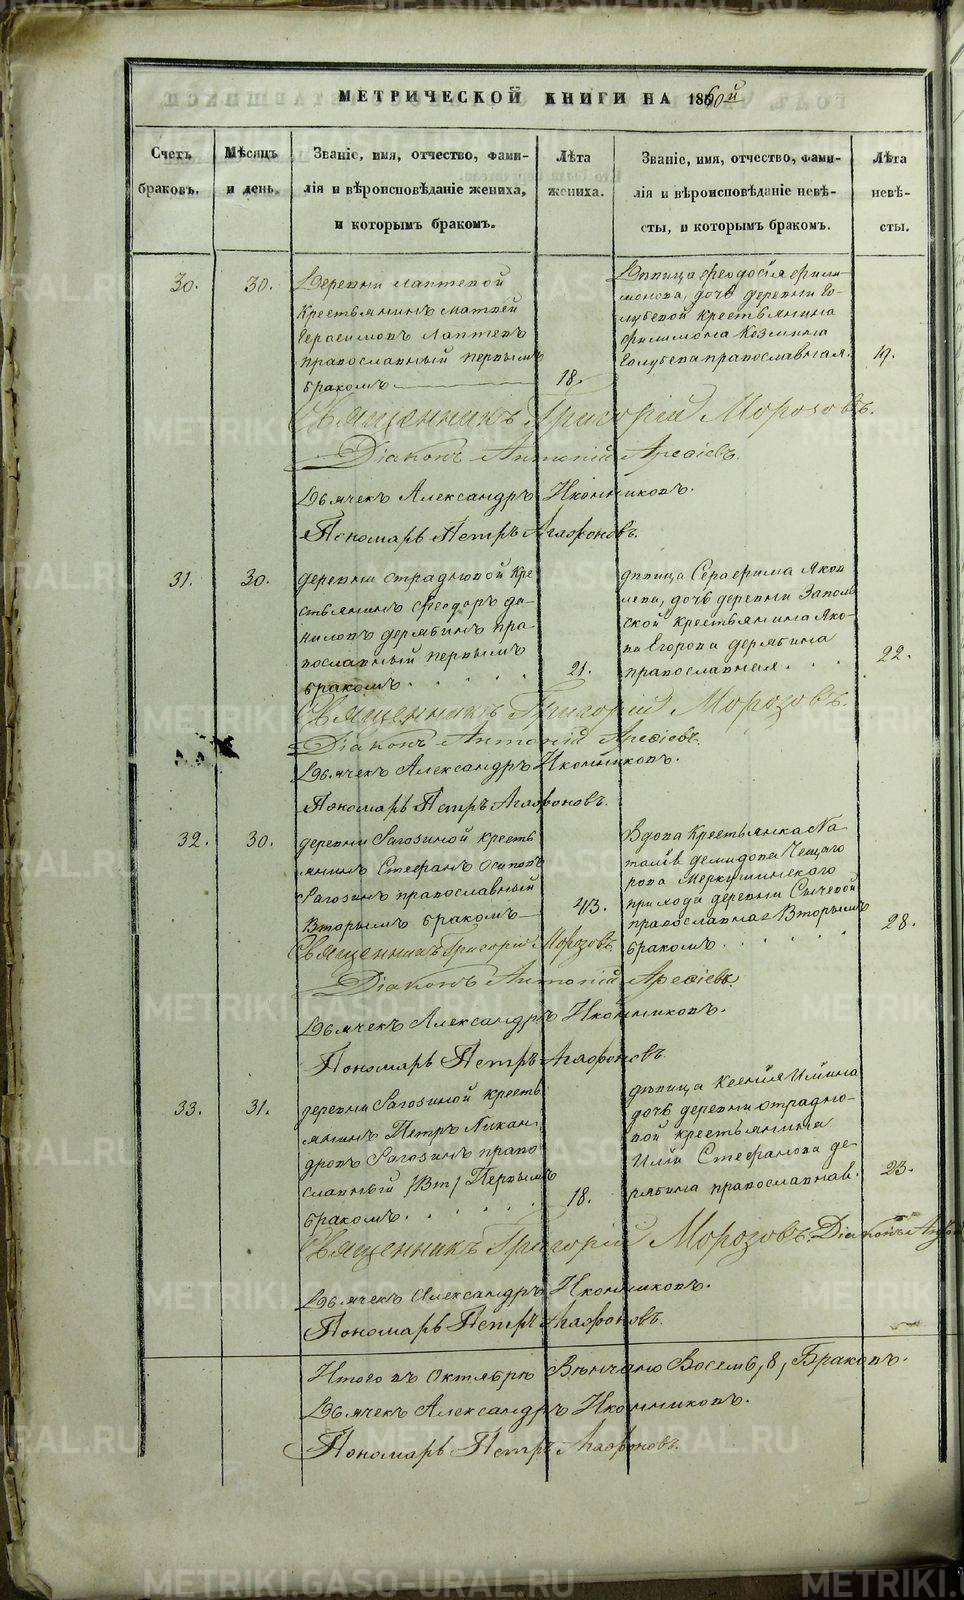 МЕТРИЧЕСКОЙ КНИГИ НА 1860й
Счетъ браковъ.
Мѣсяцъ и день.
Званіе, имя, отчество, фами-
лія и вѣроисповѣданіе жениха,
и которымъ бракомъ.
Лѣта жениха.
Званіе, имя, отчество, фами-
лія и вѣроисповѣданіе невѣ-
сты, и которымъ бракомъ.
Лѣта невѣ-
сты.
30.
30.
Деревни Лаптевой
крестьянинъ Матѳей
Герасимовъ Лаптевъ
православный первымъ
бракомъ
18.
Дѣвица Ѳеодосія Фили-
монова, дочь деревни Го-
лубевой крестьянина
Филимона Козмина
Голубева православная.
19.
Священникъ Григорій Морозовъ.
Діаконъ Антоній Арефіевъ.
Дьячекъ Александръ Иконниковъ.
Пономарь Петръ Агафоновъ.
31.
30.
деревни Отрадновой кре-
стьянинъ Ѳеодоръ Да-
ниловъ Дерябинъ пра-
вославный первымъ
бракомъ.
21.
дѣвица Серафима Яков
лева, дочь деревни Заполь
ской крестьянина Яко-
ва Егорова Дерябина
православная.
22.
Священникъ Григорій Морозовъ.
Діаконъ Антоній Арефіевъ.
Дьячекъ Александръ Иконниковъ.
Пономарь Петръ Агафоновъ.
32.
30.
деревни Рагозиной кресть
янинъ Стефанъ Осиповъ
Рагозинъ православный
Вторымъ бракомъ
43.
Вдова крестьянка На
талія Демидова Чещаго
рова Меркушинскаго
прихода деревни Сычевой
православная Вторымъ
бракомъ.
28.
Священникъ Григорій Морозовъ.
Діаконъ Антоній Арефіевъ.
Дьячекъ Александръ Иконниковъ.
Пономарь Петръ Агафоновъ.
33.
31.
деревни Рагозиной кресть
янинъ Петръ Никан
дровъ Рагозинъ право
славный /Вт/ Первымъ
бракомъ.
18.
дѣвица Ксенія Ильина
дочь деревни Отрадно-
вой крестьянина
Ильи Стефанова Де-
рябина православная.
23.
Священникъ Григорій Морозовъ. Діаконъ
Дьячекъ Александръ Иконниковъ.
Пономарь Петръ Агафоновъ.
Итого въ Октябрѣ Вѣнчано Восемь, 8, Браковъ.
Дьячекъ Александръ Иконниковъ.
Пономарь Петръ Агафоновъ.
METRIKI.GASO-URAL.RU